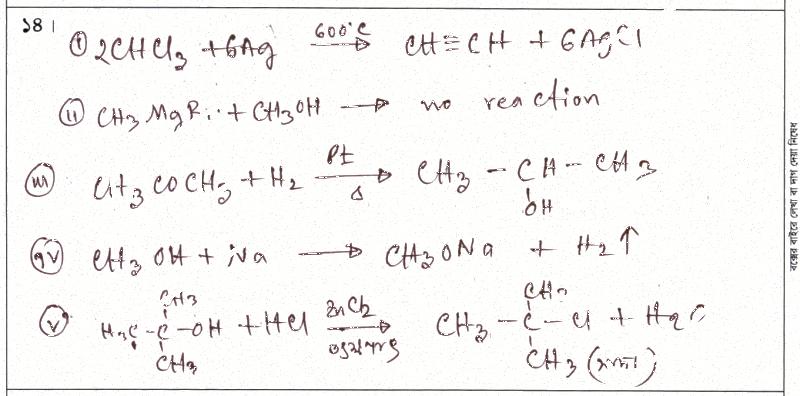 ১৪।
(i) 2CHCl₃ + 6Ag —600°C→ CH≡CH + 6AgCl
(ii) CH₃MgBr + CH₃OH → no reaction
(iii) CH₃COCH₃ + H₂ —Pt/Δ→ CH₃ – CH – CH₃
OH
(iv) CH₃OH + Na → CH₃ONa + H₂↑
CH₃ CH₃
(v) H₃C – C – OH + HCl —ZnCl₂→ CH₃ – C – Cl + H₂O
CH₃ CH₃ (সাদা)
বক্সের বাইরে লেখা বা দাগ দেয়া নিষেধ